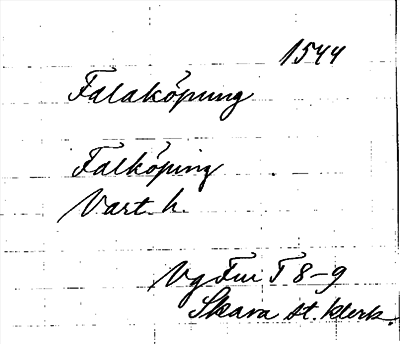 1544
Falaköpung
Falköping
Vart. h.
Vg Fur T 8-9
Skara st. klerk.